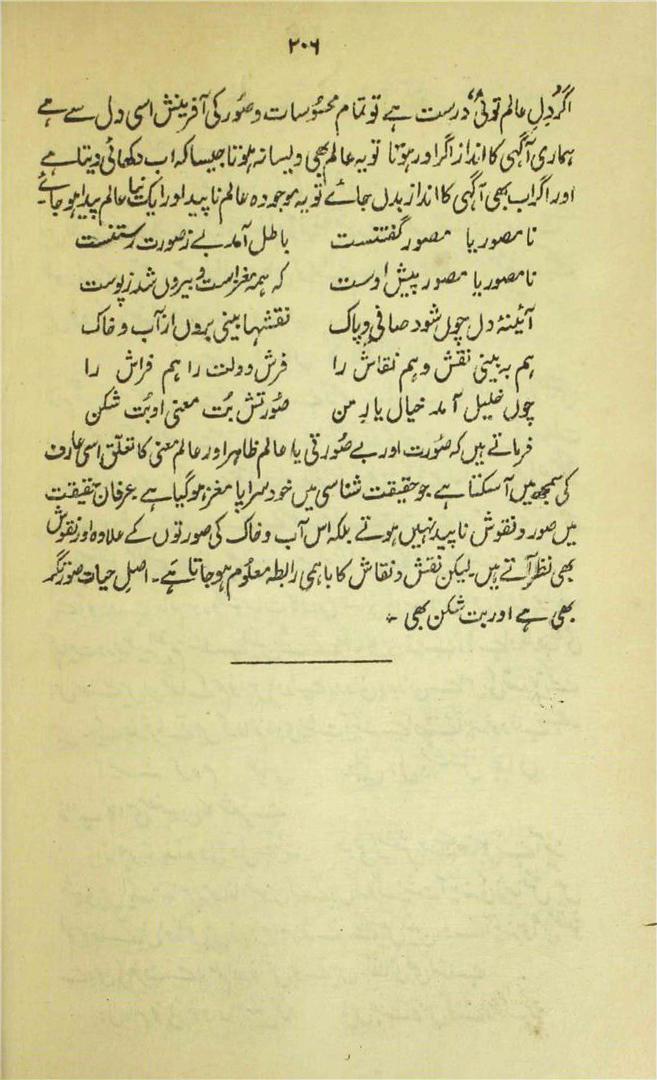 ۲۰۶
اگر ”دلِ عالم توئی“ درست ہے تو تمام محسوسات و صُور کی آفرینش اسی دل سے ہے
ہماری آگہی کا انداز اگر اور ہوتا تو یہ عالم بھی ویسا نہ ہوتا جیسا کہ اب دکھائی دیتا ہے
اور اگر اب بھی آگہی کا انداز بدل جائے تو یہ موجودہ عالم ناپید اور ایک نیا عالم پیدا ہو جائے۔
نا مصور یا مصور گفتنست باطل آمد بے ز صورت رستنست
نا مصور یا مصور پیش اوست کہ ہمہ مغز است و بیروں شد ز پوست
آئینۂ دل چوں شود صافی و پاک نقشہا بینی بروں از آب و خاک
ہم بہ بینی نقش و ہم نقاش را فرش دولت را ہم فراش را
چوں خلیل آمد خیال یار من صورتش بُت معنی او بُت شکن
فرماتے ہیں کہ صُورت اور بے صُورتی یا عالم ظاہر اور عالم معنی کا تعلق اسی عارف
کی سمجھ میں آ سکتا ہے جو حقیقت شناسی میں خود سراپا مغز ہو گیا ہے عرفان حقیقت
میں صور و نقوش ناپید نہیں ہوتے بلکہ اس آب و خاک کی صورتوں کے علاوہ اور نقوش
بھی نظر آتے ہیں۔ لیکن نقش و نقاش کا باہمی رابطہ معلوم ہو جاتا ہے۔ اصلِ حیات صورتگر
بھی ہے اور بت شکن بھی ۔